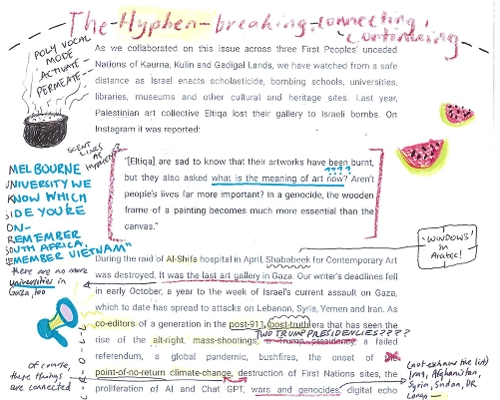 The Hyphen-breaking, connecting,
continuing
POLY VOCAL
MODE
ACTIVATE
PERMEATE
As we collaborated on this issue across three First Peoples' unceded
Nations of Kaurna, Kulin and Gadigal Lands, we have watched from a safe
distance as Israel enacts scholasticide, bombing schools, universities,
libraries, museums and other cultural and heritage sites. Last year,
Palestinian art collective Eltiqa lost their gallery to Israeli bombs. On
Instagram it was reported:
LINES
AS
"[Eltiqa] are sad to know that their artworks have been burnt,
????
but they also asked what is the meaning of art now? Aren't
people's lives far more important? In a genocide, the wooden
frame of a painting becomes much more essential than the
canvas."
MELBOURNE
UNIVERSITY WE
KNOW WHICH
SIDE YOU'RE
ON-
REMEMBER
SOUTH AFRICA,
REMEMBER VIETNAM"
there are no more
universities in
Gaza, too
'WINDOWS'
in
Arabic!
During the raid of Al-Shifa hospital in April, Shababeek for Contemporary Art
was destroyed. It was the last art gallery in Gaza. Our writer's deadlines fell
in early October, a year to the week of Israel's current assault on Gaza,
which to date has spread to attacks on Lebanon, Syria, Yemen and Iran. As
co-editors of a generation in the post-911, post-truth era that has seen the
TWO TRUMP PRESIDENCIES????
rise of the alt-right, mass-shootings, a Trump presidency, a failed
referendum, a global pandemic, bushfires, the onset of
point-of-no-return climate-change, destruction of First Nations sites, the
proliferation of AI and Chat GPT, wars and genocides, digital echo
Of course,
these things
are connected
(not exhaustive list)
Iran, Afghanistan,
Syria, Sudan, DR
Congo